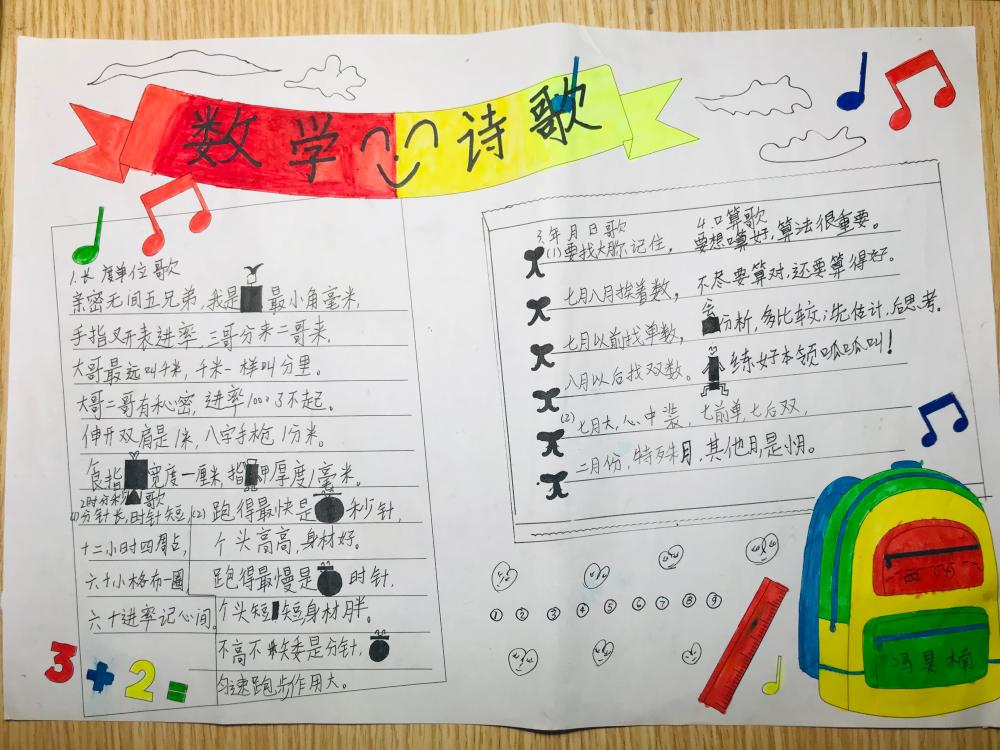 数学诗歌
1.长度单位歌
亲密无间五兄弟,我是最小角毫米,
手指叉开表进率,三哥分米二哥米,
大哥最远叫千米,千米一样叫分里。
大哥二哥有秘密,进率1000了不起。
伸开双肩是1米,八字手枪1分米。
食指宽度一厘米,指甲厚度1毫米。
2时分秒歌
(1)分针长,时针短,
十二小时四周占,
六十小格布一圈,
六十进率记心间。
(2)跑得最快是秒针,
个头高高,身材好。
跑得最慢是时针,
个头短短身材胖。
不高不矮是分针,
匀速跑步作用大。
3.年月日歌
(1)要找大月你记住,
七月八月挨着数,
七月以前找单数,
八月以后找双数。
(2)七月大,心中装,七前单,七后双,
二月份,特殊月,其他月是小月。
4.口算歌
要想算好,算法很重要。
不尽要算对,还要算得好。
会分析,多比较;先估计,后思考。
练好本领呱呱叫!
① ② ③ ④ ⑤ ⑥ ⑦ ⑧ ⑨
3+2=
冯昊楠